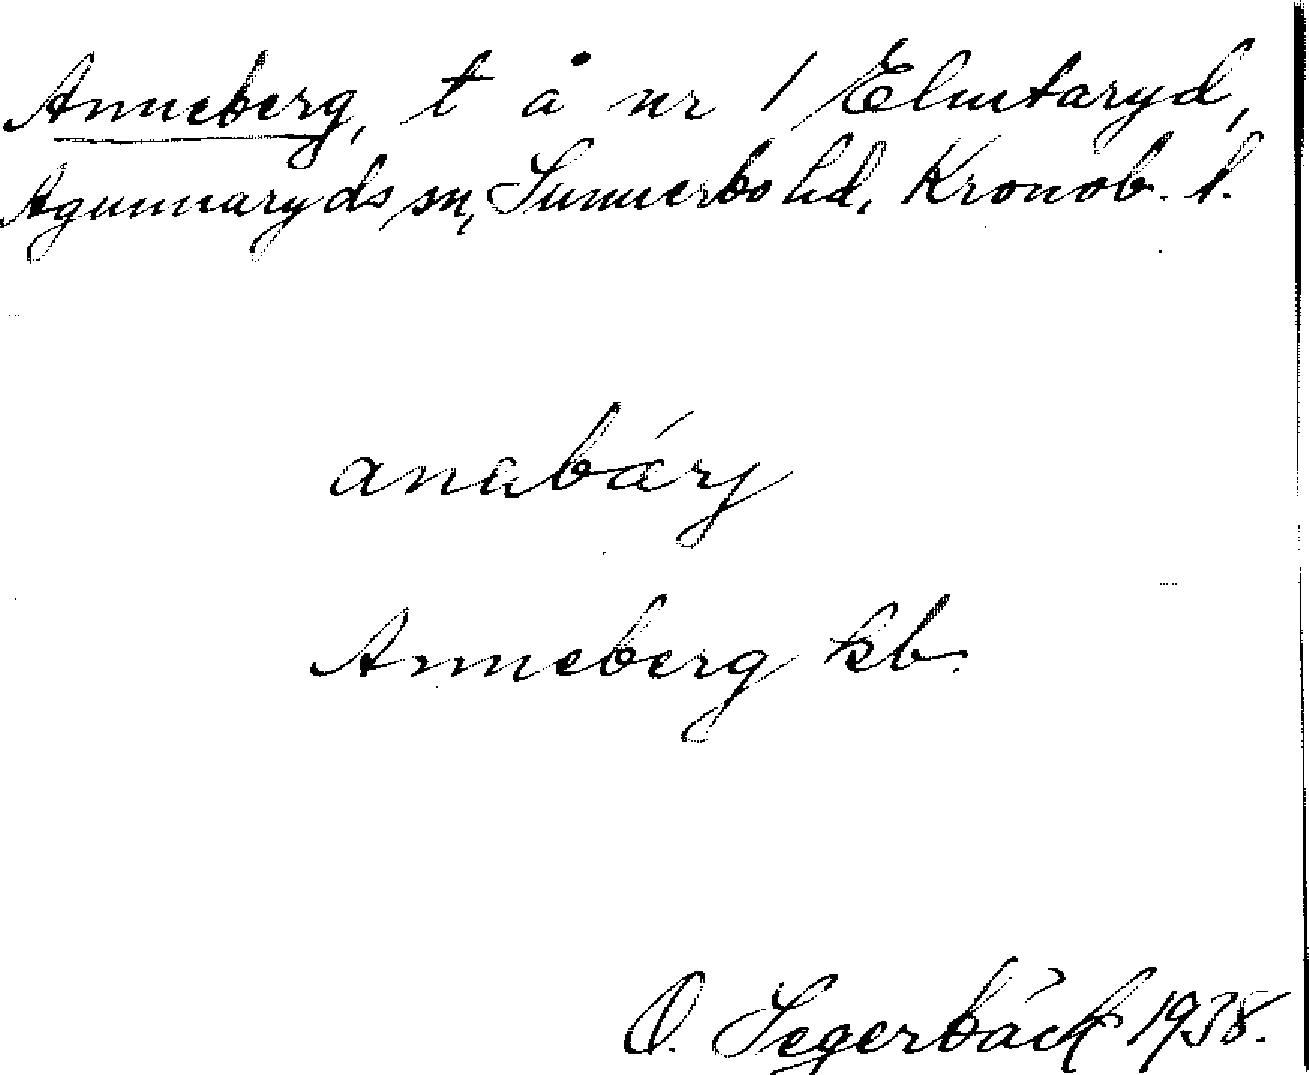 Anneberg, t å nr 1 Elmtaryd,
Agunnaryds sn, Sunnerbo hd, Kronob. l.
anabárj
Anneberg kb.
O. Segerbäck 1938.